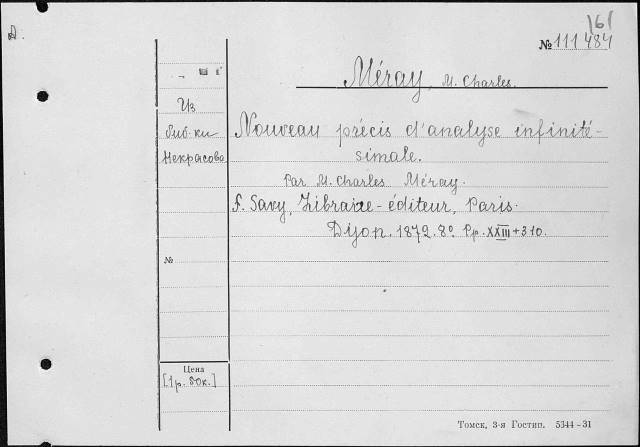 Д.
161
№ 111484
Méray, M. Charles.
Из
биб-ки
Некрасова
Nouveau précis d'analyse infinité-
simale.
Par M. Charles Méray.
F. Savy, Libraire-éditeur, Paris.
Dijon. 1872. 8° Pp. XXIII + 310.
№
Цена
[1р. 80к.]
Томск, 3-я Гостип. 5344-31